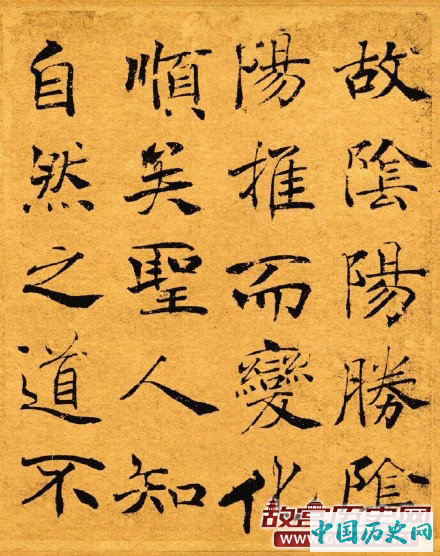 故陰陽勝陰
陽推而變化
順矣聖人知
自然之道不
故宫历史网
中国历史网